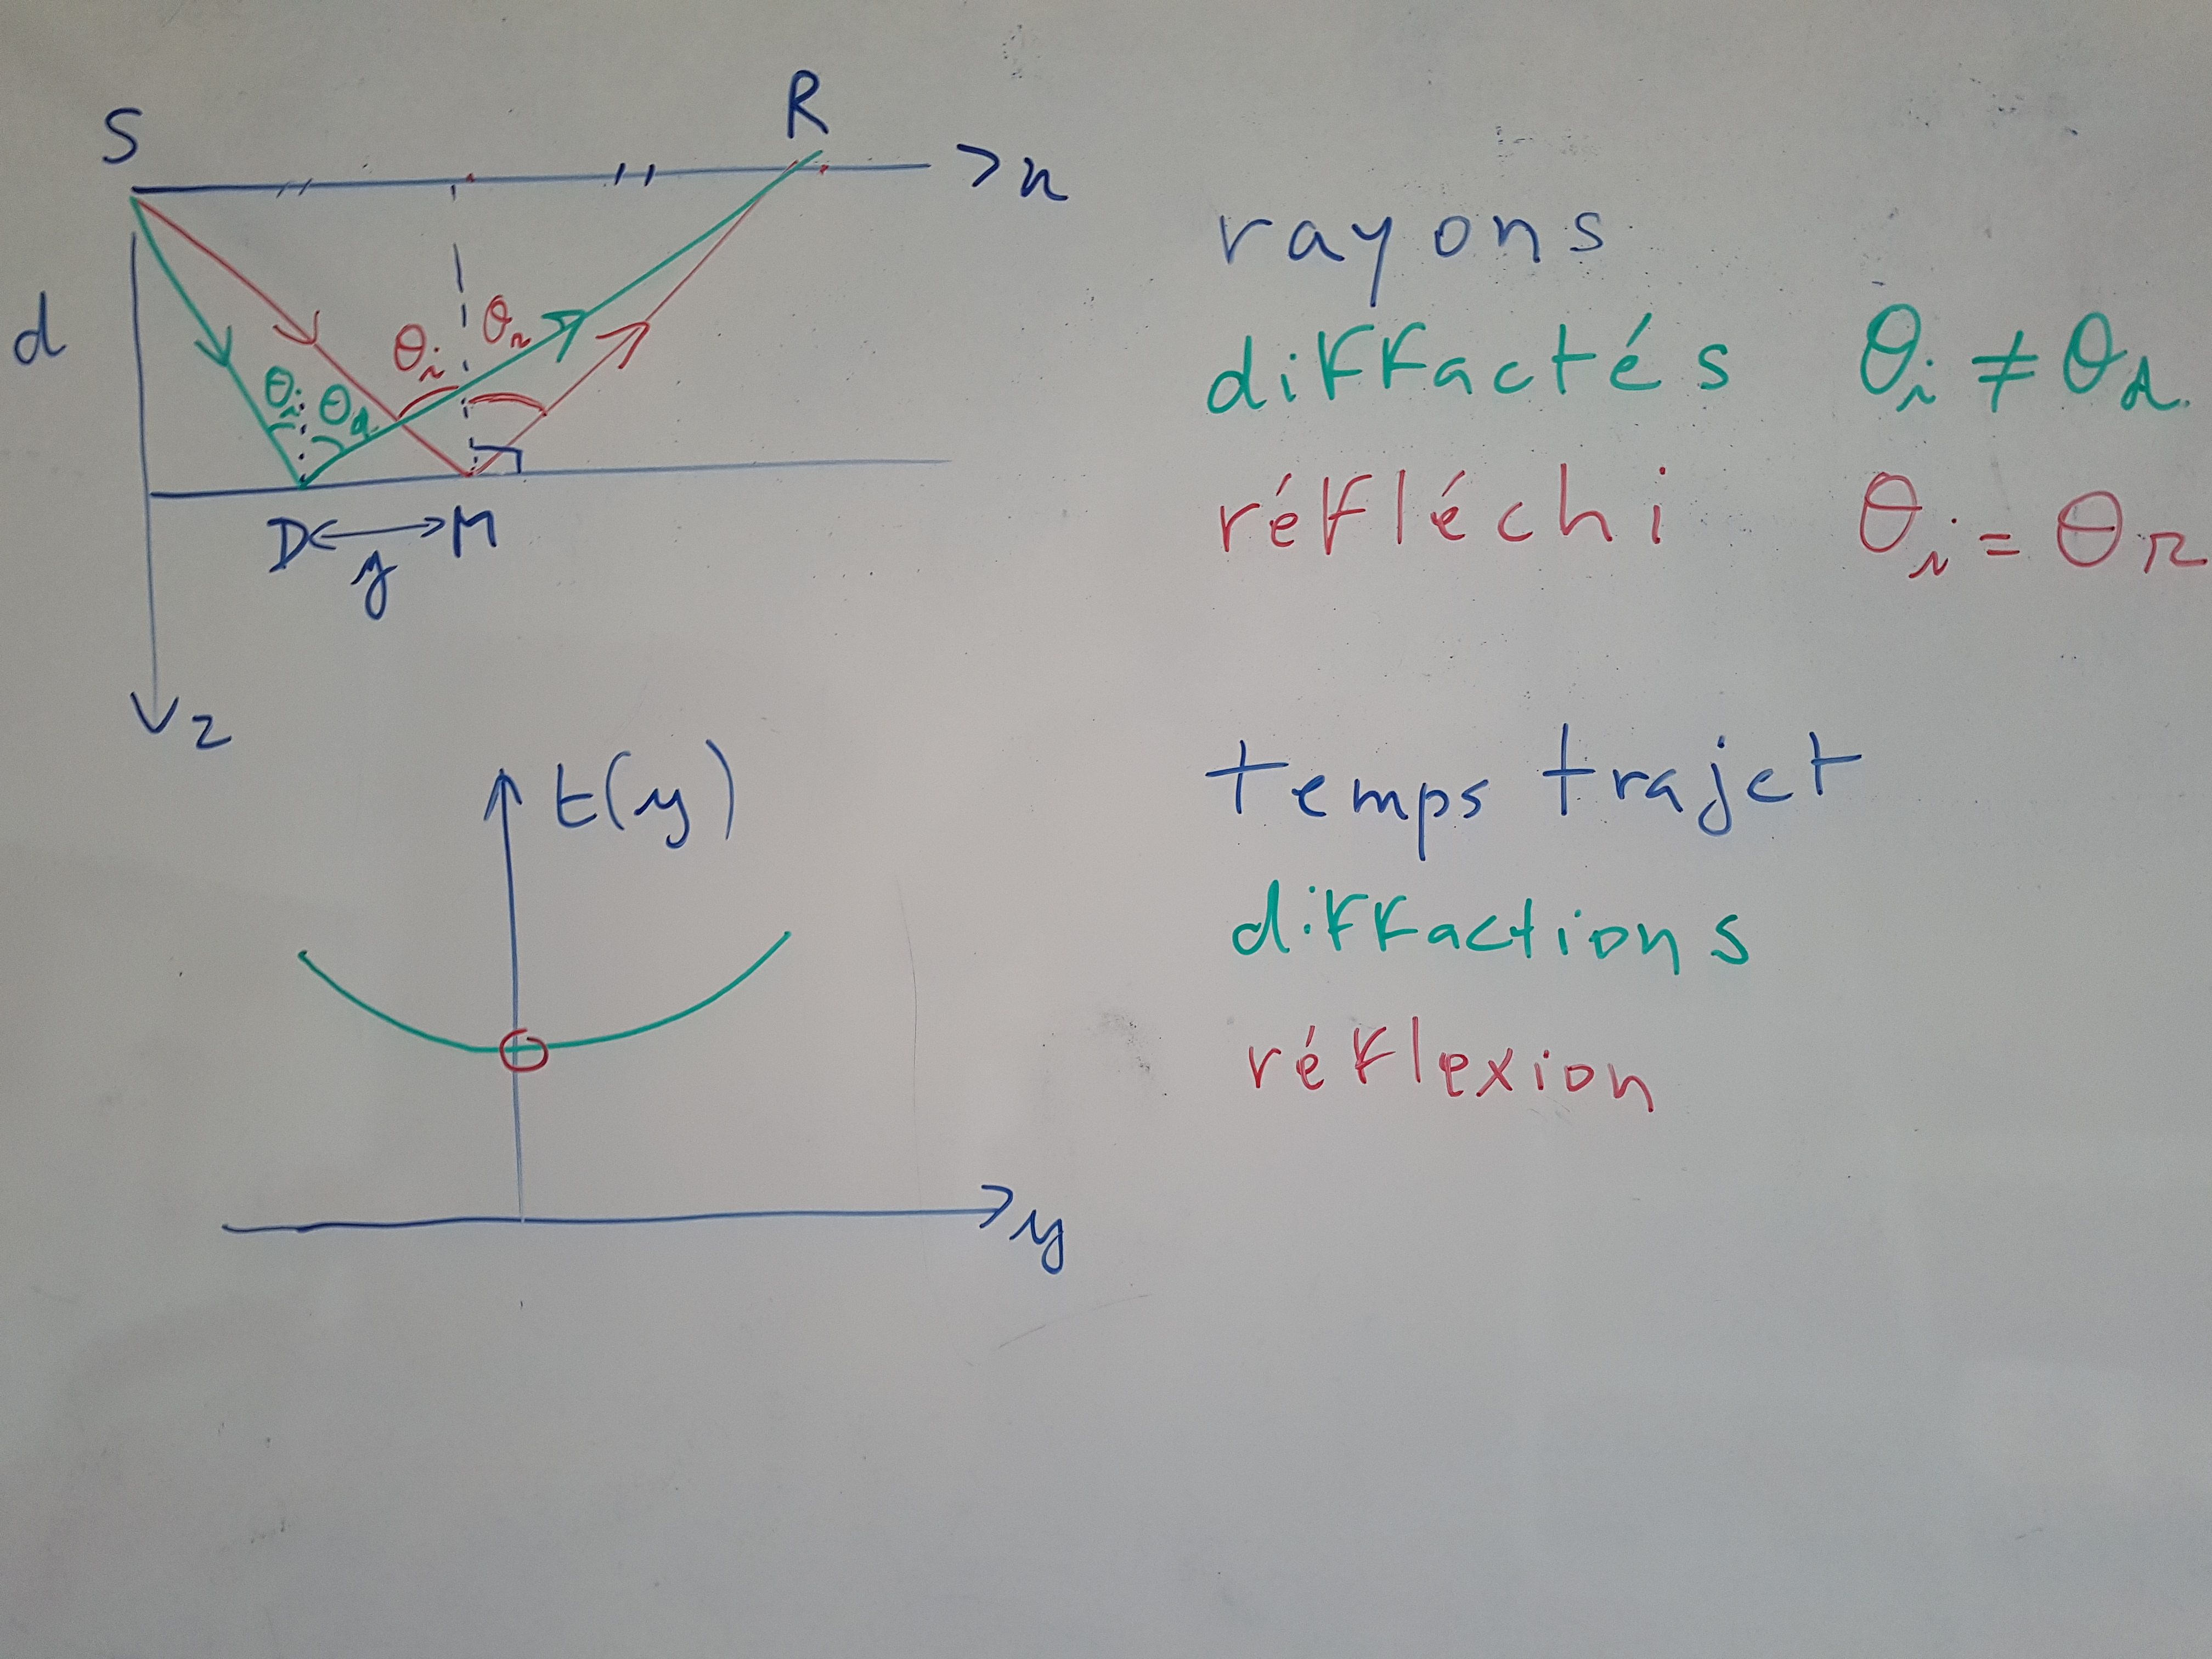 S
R
x
d
θi θr
θi θd
D M
y
z
rayons
diffactés θi ≠ θd
réfléchi θi = θr
t(y)
y
temps trajet
diffactions
réflexion